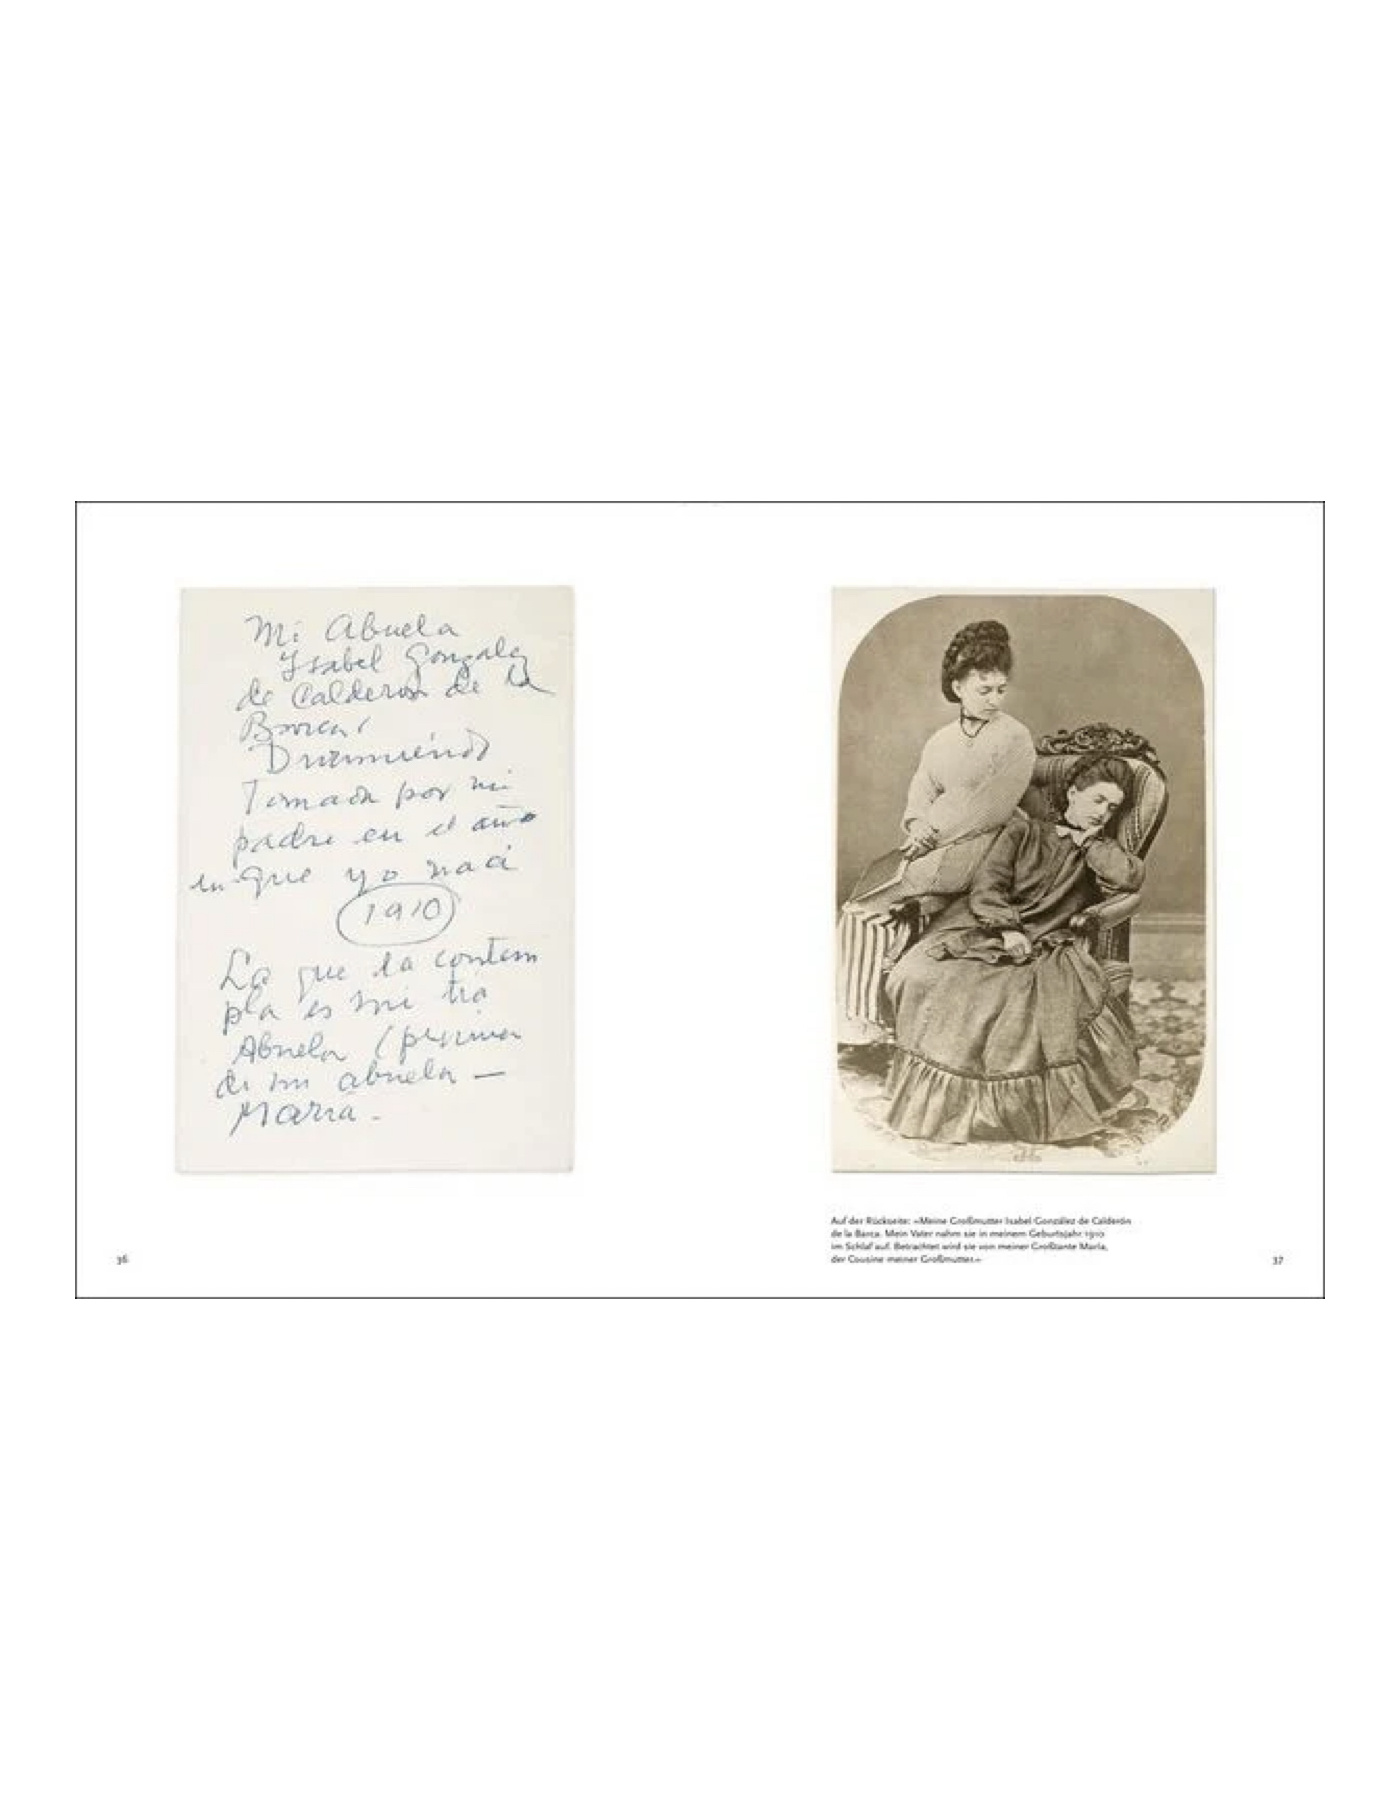 Mi Abuela
Ysabel Gonzalez
de Calderon de la
Barca,
Durmiendo
Tomada por mi
padre en el año
en que yo naci
1910
La que la contem
pla es mi tia
Abuela (prima
de mi abuela —
Maria -
Auf der Rückseite: »Meine Großmutter Isabel González de Calderón
de la Barca. Mein Vater nahm sie in meinem Geburtsjahr 1910
im Schlaf auf. Betrachtet wird sie von meiner Großtante María,
der Cousine meiner Großmutter.«
36
37